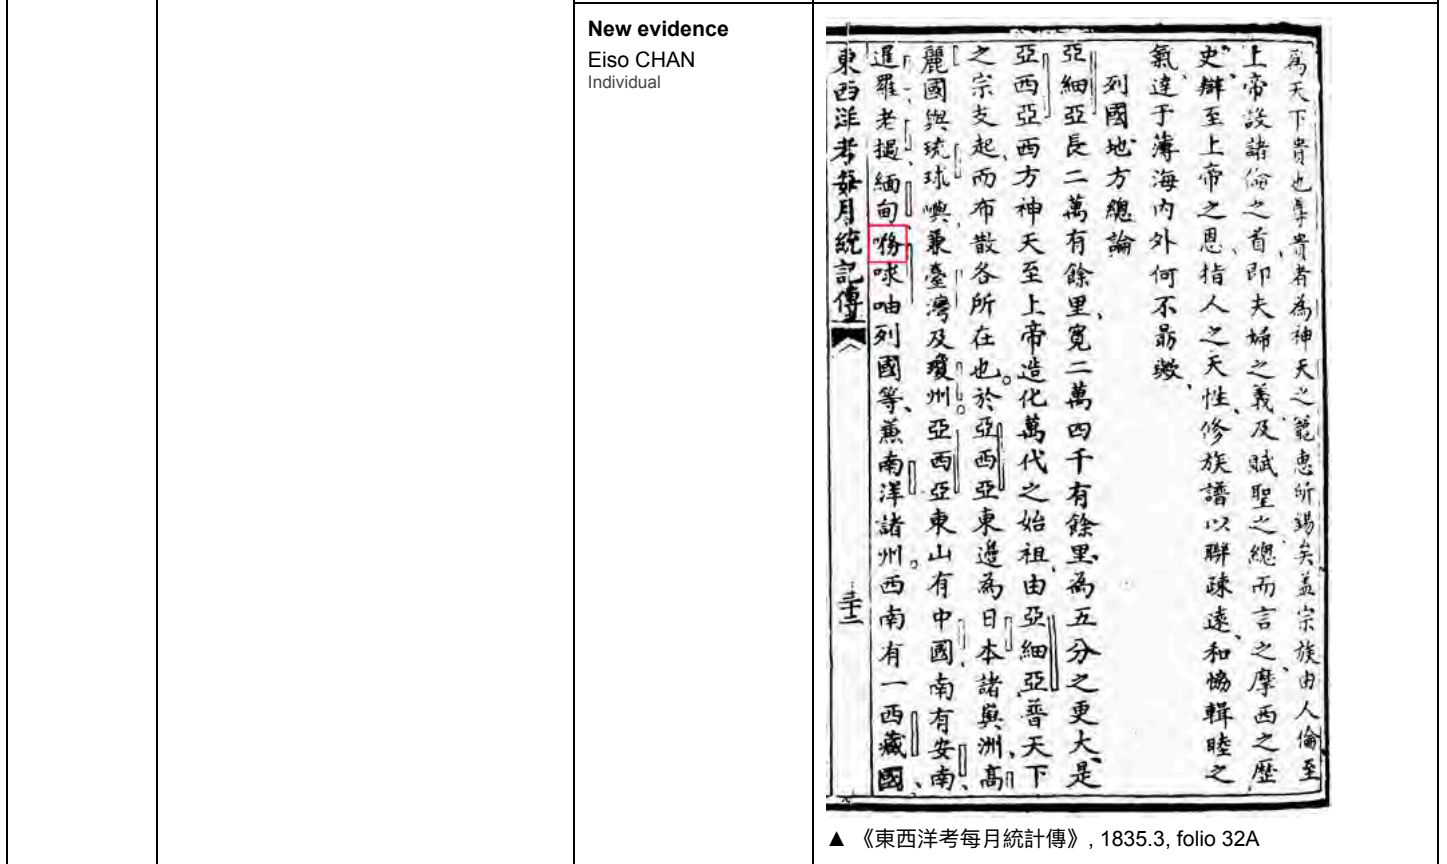 New evidence
Eiso CHAN
Individual
爲天下貴也尊貴者為神天之寵恵所錫矣盖宗族由人倫至
上帝設諸倫之首、即夫婦之義及賦聖之總而言之、摩西之歷
史辯至上帝之恩、指人之天性、修族譜以聯疎遠、和恊輯睦之
氣、達于薄海内外何不朂歟、
列國地方總論
亞細亞長二萬有餘里、寛二萬四千有餘里、為五分之更大、是
亞西亞西方神天至上帝造化萬代之始祖、由亞細亞普天下
之宗支起、而布散各所在也。於亞西亞東邉為日本諸洲、高
麗國與琉球嶼兼臺灣及瓊州。亞西亞東山有中國、南有安南、
暹羅老撾緬甸列國等、兼南洋諸州。西南有一西藏國、
東西洋考每月統記傳 三十二
▲ 《東西洋考每月統計傳》, 1835.3, folio 32A